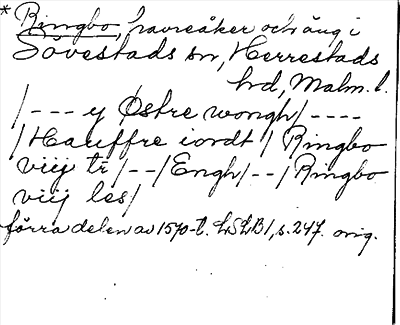 * Ringbo, havreåker och äng i
Sövestads sn, Herrestads
hd, Malm. l.
/--- y Østre wongh/----
/Hauffre iordt/ Ringbo
viij tr/--/Engh/--/Ringbo
viij les/
förra delen av 1570-t. LSLB1, s. 247. orig.